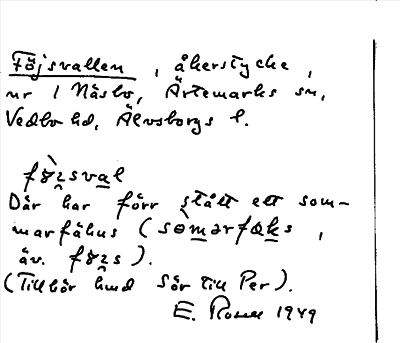 Föjsvallen, åkerstycke,
nr 1 Näsbo, Ärtemarks sn,
Vedbo hd, Älvsborgs l.
Där har förr stått ett som-
marfähus (
äv.
(Tillhör hmd Sör till Per).
E. Rosell 1949